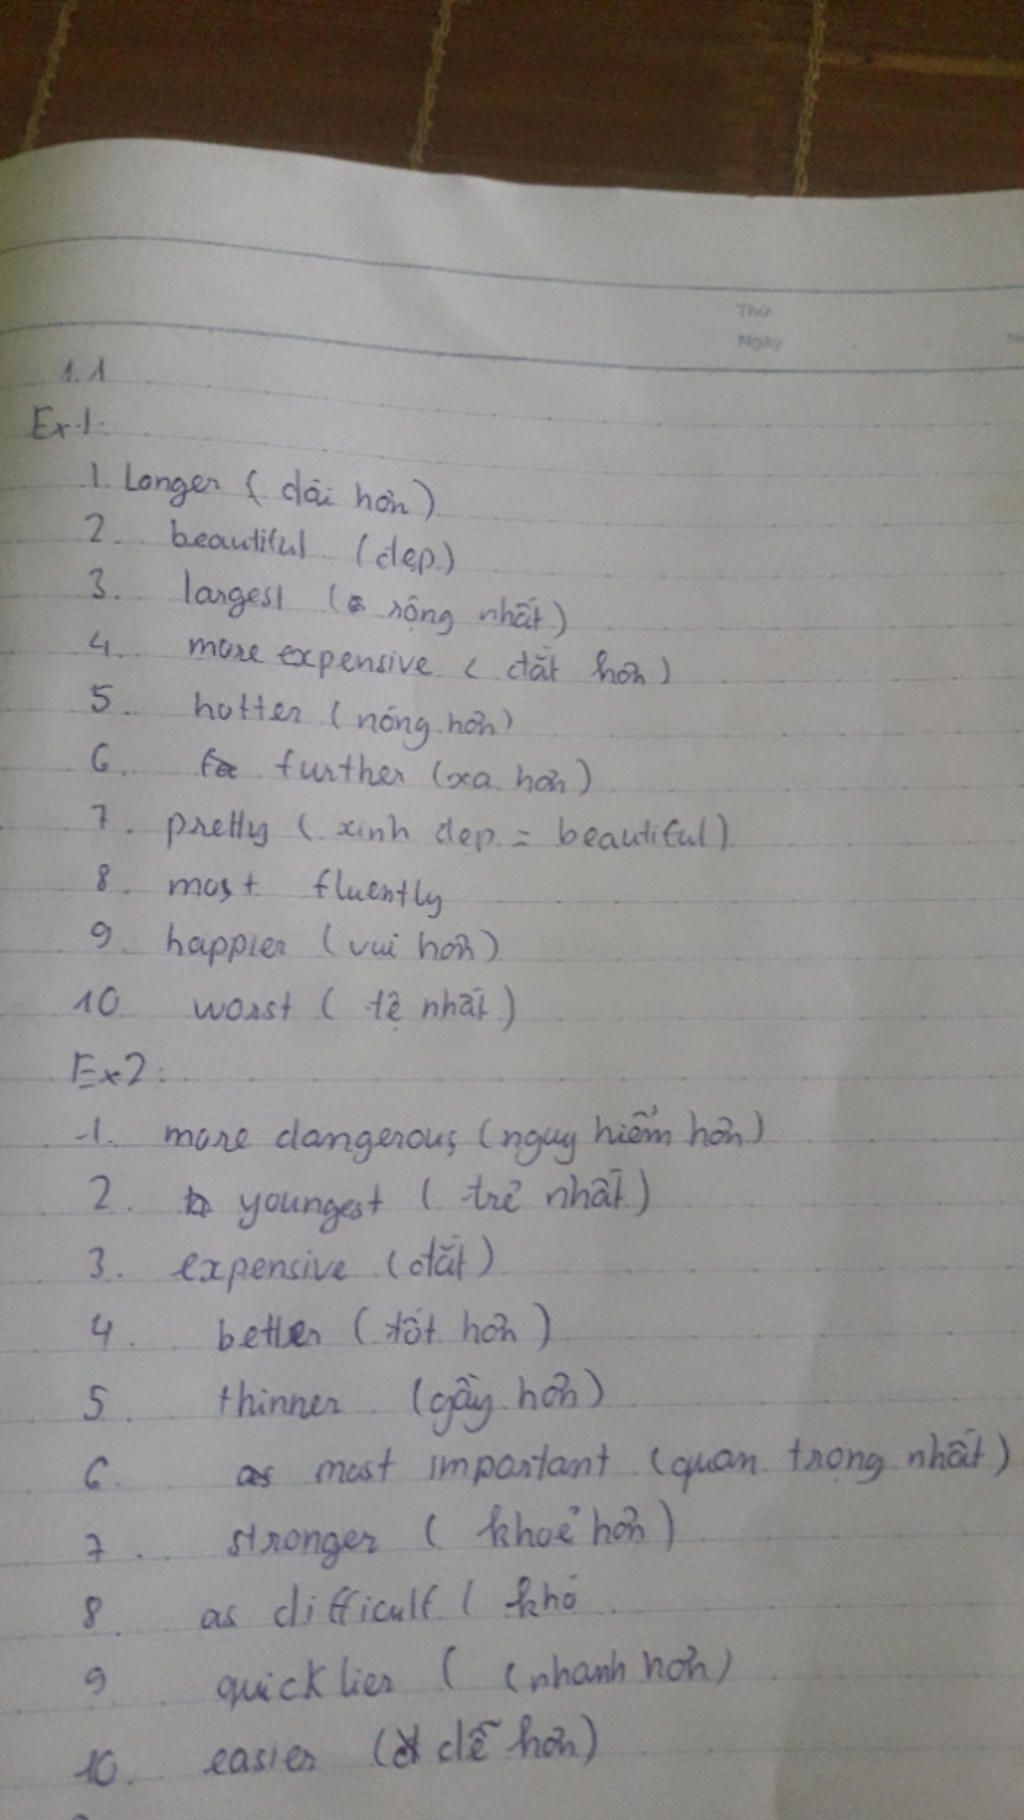 Thứ
Ngày
1.1
Ex 1:
1. Longer (dài hơn)
2. beautiful (đẹp)
3. largest (rộng nhất)
4. more expensive (đắt hơn)
5. hotter (nóng hơn)
6. further (xa hơn)
7. pretty (xinh đẹp = beautiful)
8. most fluently
9. happier (vui hơn)
10 worst (tệ nhất)
Ex2:
1. more dangerous (nguy hiểm hơn)
2. youngest (trẻ nhất)
3. expensive (đắt)
4. better (tốt hơn)
5. thinner (gầy hơn)
6. as most important (quan trọng nhất)
7. stronger (khoẻ hơn)
8. as difficult ( khó
9 quicklier ( (nhanh hơn)
10. easier (dễ hơn)